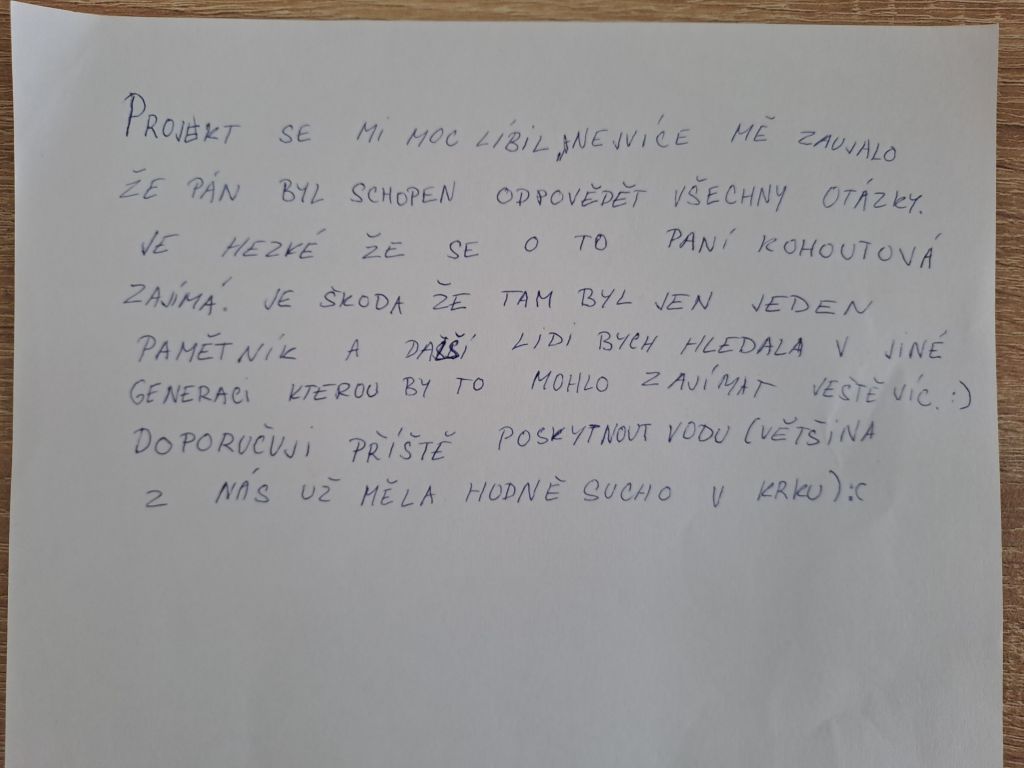 PROJEKT SE MI MOC LÍBIL, NEJVÍCE MĚ ZAUJALO
ŽE PÁN BYL SCHOPEN ODPOVĚDĚT VŠECHNY OTÁZKY.
JE HEZKÉ ŽE SE O TO PANÍ KOHOUTOVÁ
ZAJÍMÁ. JE ŠKODA ŽE TAM BYL JEN JEDEN
PAMĚTNÍK A DALŠÍ LIDI BYCH HLEDALA V JINÉ
GENERACI KTEROU BY TO MOHLO ZAJÍMAT JEŠTĚ VÍC. :)
DOPORUČUJI PŘÍŠTĚ POSKYTNOUT VODU (VĚTŠINA
Z NÁS UŽ MĚLA HODNĚ SUCHO V KRKU) :C